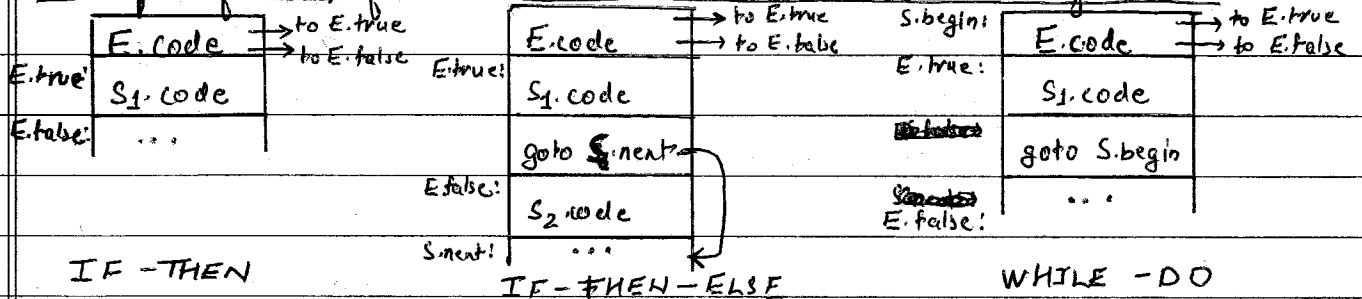 E.code
→ to E.true
→ to E.false
E.true:
S1.code
E.false:
...
IF-THEN
E.code
→ to E.true
→ to E.false
E.true:
S1.code
goto S.next
E.false:
S2.code
S.next:
...
IF-THEN-ELSE
S.begin:
E.code
→ to E.true
→ to E.false
E.true:
S1.code
goto S.begin
E.false:
...
WHILE-DO